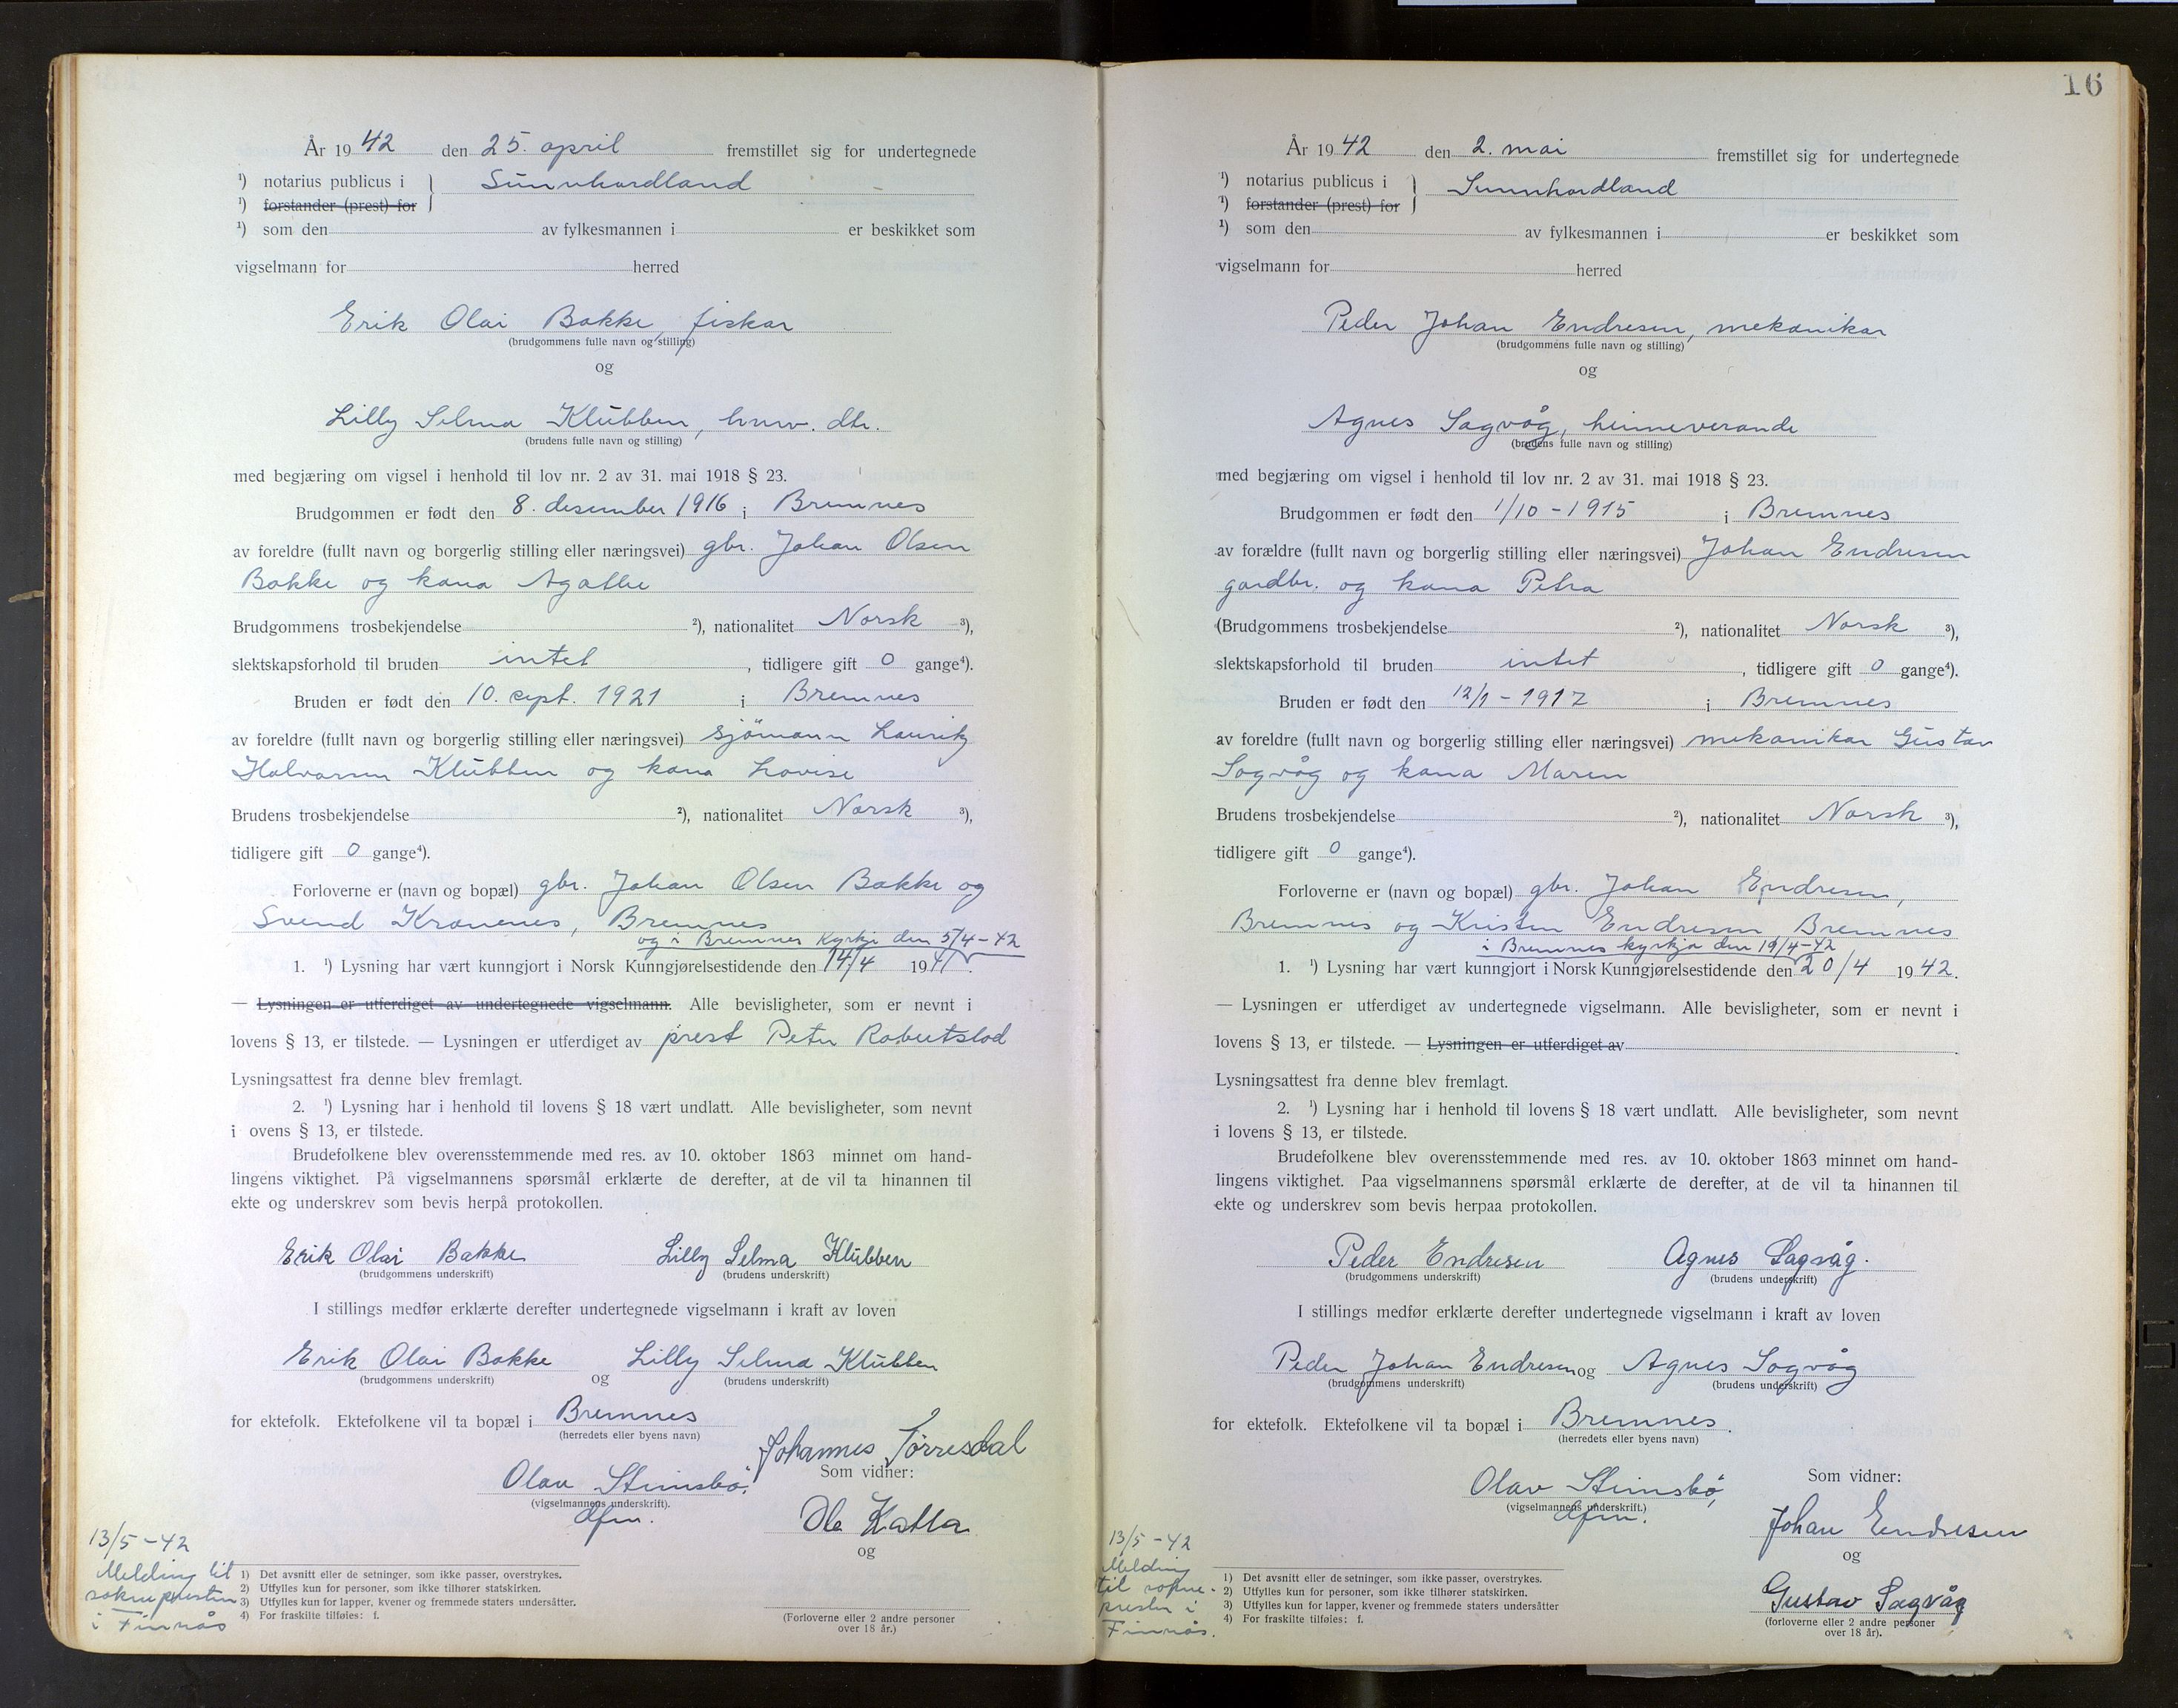 År 1942 den 25. april fremstillet sig for undertegnede
¹) notarius publicus i } Sunnhordland
¹) forstander (prest) for
¹) som den av fylkesmannen i er beskikket som
vigselmann for herred
Erik Olai Bakke, fiskar
(brudgommens fulle navn og stilling)
og
Lilly Selma Klubben, hmv. dtr.
(brudens fulle navn og stilling)
med begjæring om vigsel i henhold til lov nr. 2 av 31. mai 1918 § 23.
Brudgommen er født den 8. desember 1916 i Bremnes
av foreldre (fullt navn og borgerlig stilling eller næringsvei) gbr. Johan Olsen
Bakke og kona Agathe
Brudgommens trosbekjendelse ²), nationalitet Norsk ³),
slektskapsforhold til bruden intet, tidligere gift 0 gange⁴).
Bruden er født den 10. sept. 1921 i Bremnes
av foreldre (fullt navn og borgerlig stilling eller næringsvei) sjömann Lauritz
Halvorsen Klubben og kona Lovise
Brudens trosbekjendelse ²), nationalitet Norsk ³),
tidligere gift 0 gange⁴).
Forloverne er (navn og bopæl) gbr. Johan Olsen Bakke og
Svend Kronenes, Bremnes
og i Bremnes Kyrkje den 5/4-42
1. ¹) Lysning har vært kunngjort i Norsk Kunngjørelsestidende den 14/4 1941.
— Lysningen er utferdiget av undertegnede vigselmann. Alle bevisligheter, som er nevnt i
lovens § 13, er tilstede. — Lysningen er utferdiget av prest Peter Robertstad
Lysningsattest fra denne blev fremlagt.
2. ¹) Lysning har i henhold til lovens § 18 vært undlatt. Alle bevisligheter, som nevnt
i ovens § 13, er tilstede.
Brudefolkene blev overensstemmende med res. av 10. oktober 1863 minnet om hand-
lingens viktighet. På vigselmannens spørsmål erklærte de derefter, at de vil ta hinannen til
ekte og underskrev som bevis herpå protokollen.
Erik Olai Bakke Lilly Selma Klubben
(brudgommens underskrift) (brudens underskrift)
I stillings medfør erklærte derefter undertegnede vigselmann i kraft av loven
Erik Olai Bakke og Lilly Selma Klubben
(brudgommens underskrift) (brudens underskrift)
for ektefolk. Ektefolkene vil ta bopæl i Bremnes
(herredets eller byens navn)
Johannes Tørresdal
Som vidner:
Olav Steinsbø
(vigselmannens underskrift).
dfm.
Ole Katla
og
(Forloverne eller 2 andre personer
over 18 år.)
13/5-42
Melding til
soknepresten
i Finnås
1) Det avsnitt eller de setninger, som ikke passer, overstrykes.
2) Utfylles kun for personer, som ikke tilhører statskirken.
3) Utfylles kun for lapper, kvener og fremmede staters undersåtter.
4) For fraskilte tilføies: f.
16
År 1942 den 2. mai fremstillet sig for undertegnede
¹) notarius publicus i } Sunnhordland
¹) forstander (prest) for
¹) som den av fylkesmannen i er beskikket som
vigselmann for herred
Peder Johan Endresen, mekanikar
(brudgommens fulle navn og stilling)
og
Agnes Sagvåg, heimeverande
(brudens fulle navn og stilling)
med begjæring om vigsel i henhold til lov nr. 2 av 31. mai 1918 § 23.
Brudgommen er født den 1/10-1915 i Bremnes
av forældre (fullt navn og borgerlig stilling eller næringsvei) Johan Endresen
gardbr. og kona Petra
(Brudgommens trosbekjendelse ²), nationalitet Norsk ³),
slektskapsforhold til bruden intet, tidligere gift 0 gange⁴).
Bruden er født den 12/1-1917 i Bremnes
av foreldre (fullt navn og borgerlig stilling eller næringsvei) mekanikar Gustav
Sagvåg og kona Maren
Brudens trosbekjendelse ²), nationalitet Norsk ³),
tidligere gift 0 gange⁴).
Forloverne er (navn og bopæl) gbr. Johan Endresen,
Bremnes og Kristen Endresen Bremnes
i Bremnes kyrkja den 19/4-42
1. ¹) Lysning har vært kunngjort i Norsk Kunngjørelsestidende den 20/4 1942.
— Lysningen er utferdiget av undertegnede vigselmann. Alle bevisligheter, som er nevnt i
lovens § 13, er tilstede. — Lysningen er utferdiget av
Lysningsattest fra denne blev fremlagt.
2. ¹) Lysning har i henhold til lovens § 18 vært undlatt. Alle bevisligheter, som nevnt
i lovens § 13, er tilstede.
Brudefolkene blev overensstemmende med res. av 10. oktober 1863 minnet om hand-
lingens viktighet. Paa vigselmannens spørsmål erklærte de derefter, at de vil ta hinannen til
ekte og underskrev som bevis herpaa protokollen.
Peder Endresen Agnes Sagvåg.
(brudgommens underskrift) (brudens underskrift)
I stillings medfør erklærte derefter undertegnede vigselmann i kraft av loven
Peder Johan Endresen og Agnes Sagvåg
(brudgommens underskrift) (brudens underskrift)
for ektefolk. Ektefolkene vil ta bopæl i Bremnes.
(herredets eller byens navn)
Som vidner:
Olav Steinsbø,
(vigselmannens underskrift.)
dfm.
Johan Endresen
og
Gustav Sagvåg
(forloverne eller 2 andre personer
over 18 år).
13/5-42
Melding
til sokne-
presten i
Finnås.
1) Det avsnitt eller de setninger, som ikke passer, overstrykes.
2) Utfylles kun for personer, som ikke tilhører statskirken.
3) Utfylles kun for lapper, kvener og fremmede staters undersåtter
4) For fraskilte tilføies: f.